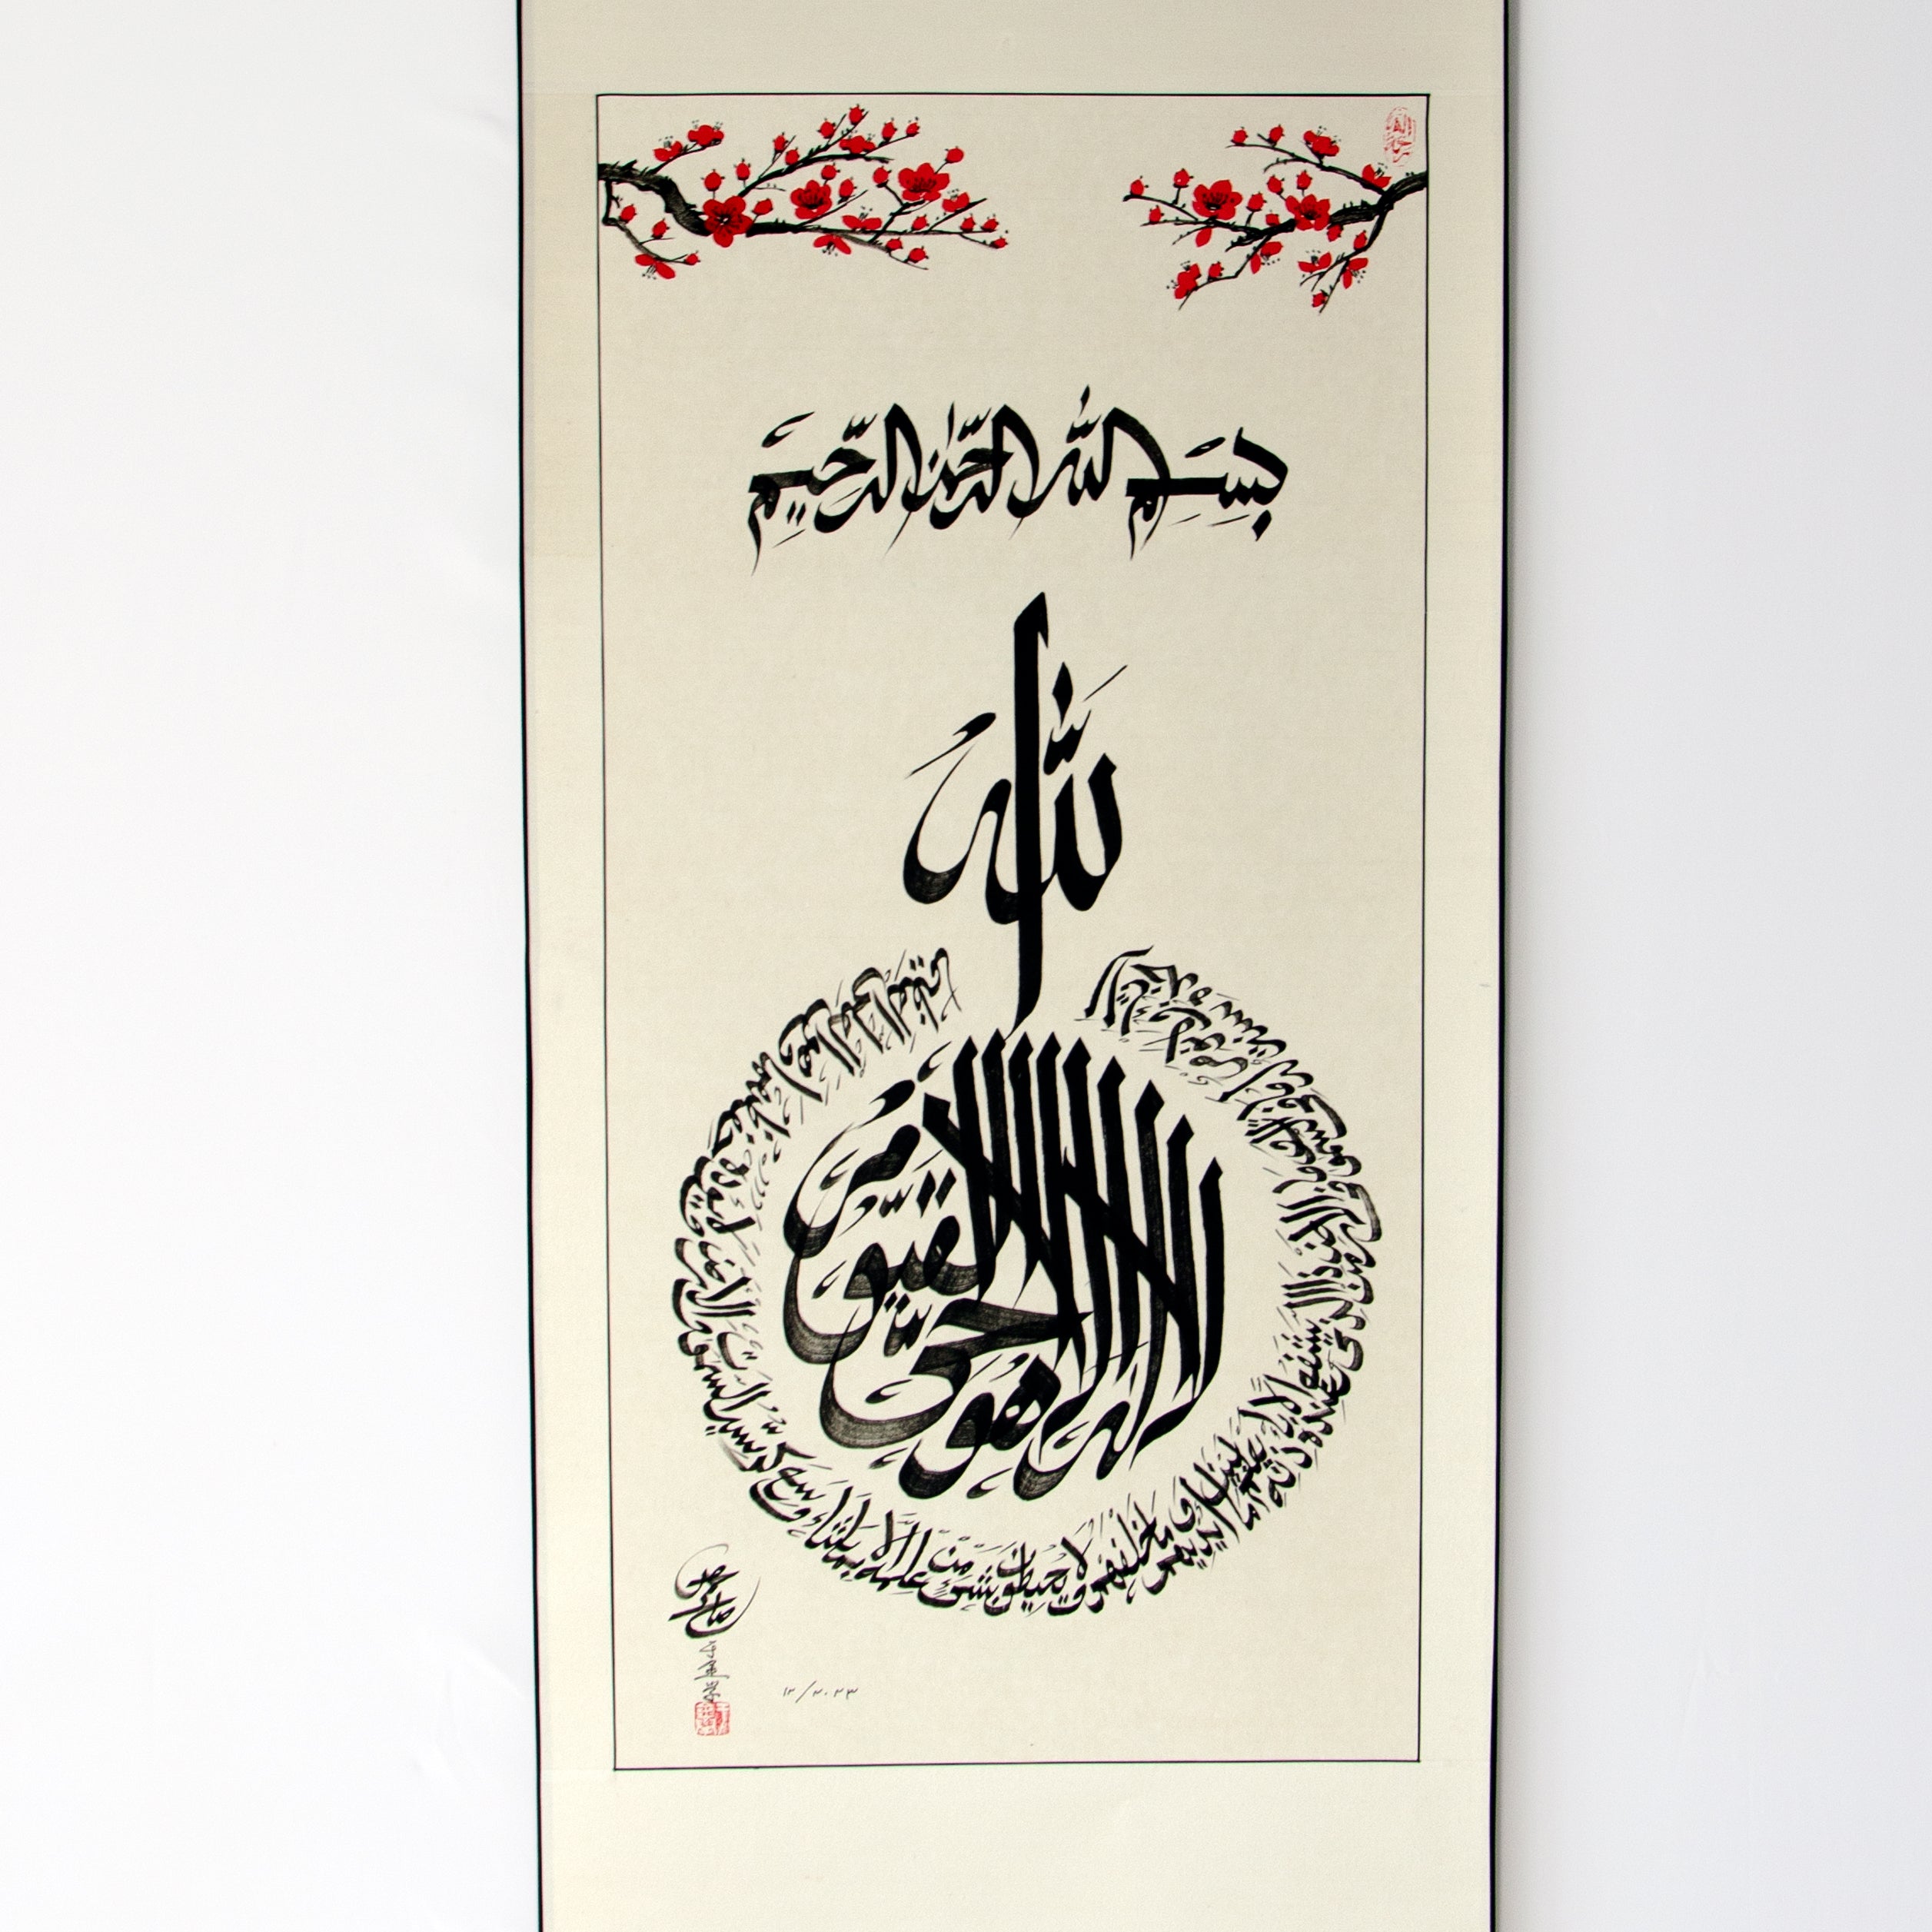 بِسْمِ اللّٰهِ الرَّحْمٰنِ الرَّحِيْمِ
اللّٰه
لا إله إلا هو الحي القيوم
لا تأخذه سنة ولا نوم له ما في السموات وما في الأرض من ذا الذي يشفع عنده إلا بإذنه يعلم ما بين أيديهم وما خلفهم ولا يحيطون بشيء من علمه إلا بما شاء وسع كرسيه السموات والأرض ولا يؤده حفظهما وهو العلي العظيم
١٢/٢٠٢٣